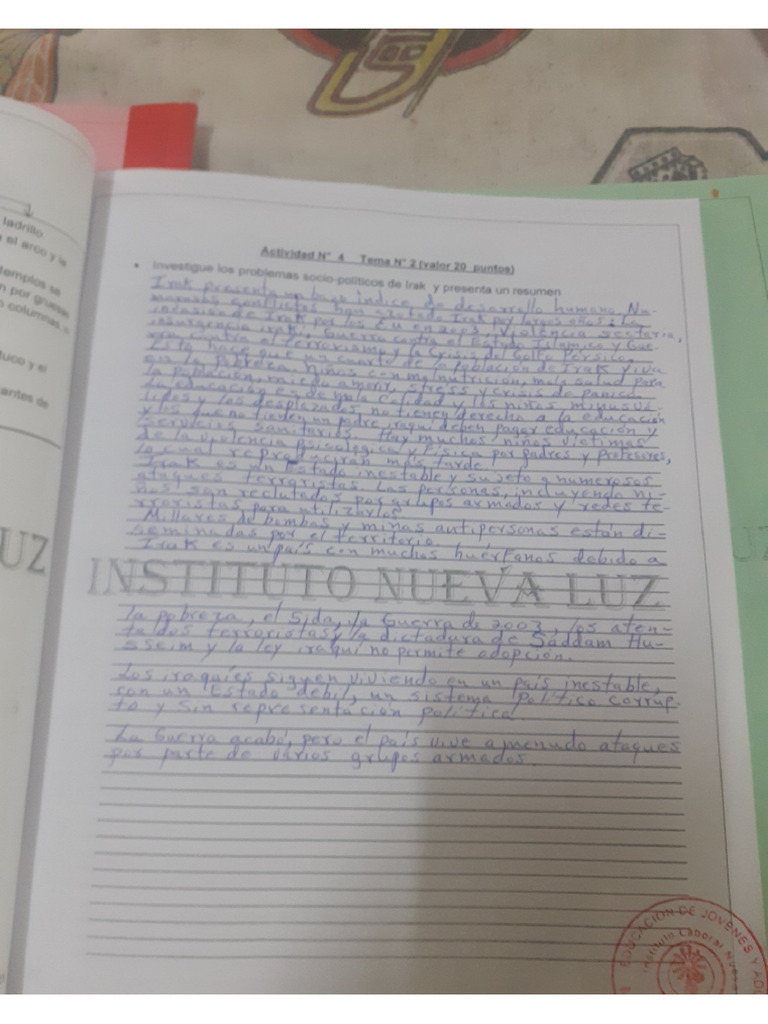 ladrillo
el arco y la
templos se
n por gruesa
columnas,
tuco y el
antes de
UZ
Actividad N° 4 Tema N° 2 (valor 20 puntos)
• Investigue los problemas socio-políticos de Irak y presenta un resumen
Irak presenta un bajo índice de desarrollo humano. Nu-
merosos conflictos han azotado Irak por largos años: la
invasión de Irak por los EU en 2003, Violencia sectaria,
insurgencia iraki, Guerra contra el Estado Islámico, Gue-
rra contra el Terrorismo y la Crisis del Golfo Pérsico.
Esto hace que un cuarto de la población de Irak viva
en la pobreza. Niños con malnutrición, mala salud para
la población, miedo a morir, stress y crisis de pánico.
La educación es de mala calidad y los niños minusvá-
lidos y los desplazados no tienen derecho a la educación
y los que no tienen un padre iraqui deben pagar educación y
servicios sanitarios. Hay muchos niños víctimas
de la violencia psicológica y física por padres y profesores,
lo cual reproducirán más tarde.
Irak es un Estado inestable y sujeto a numerosos
ataques terroristas. Las personas, incluyendo ni-
ños son reclutados por grupos armados y redes te-
rroristas para utilizarlos.
Millares de bombas y minas antipersonas están di-
seminadas por el territorio.
Irak es un país con muchos huérfanos debido a
INSTITUTO NUEVA LUZ
la pobreza, el Sida, la Guerra de 2003, los aten-
tados terroristas y la dictadura de Saddam Hu-
sseim y la ley iraquí no permite adopción.
Los iraquíes siguen viviendo en un país inestable,
con un Estado débil, un sistema político corrup-
to y sin representación política.
La Guerra acabó, pero el país vive a menudo ataques
por parte de varios grupos armados.
EDUCACION DE JOVENES Y AD
Instituto Laboral Nueva